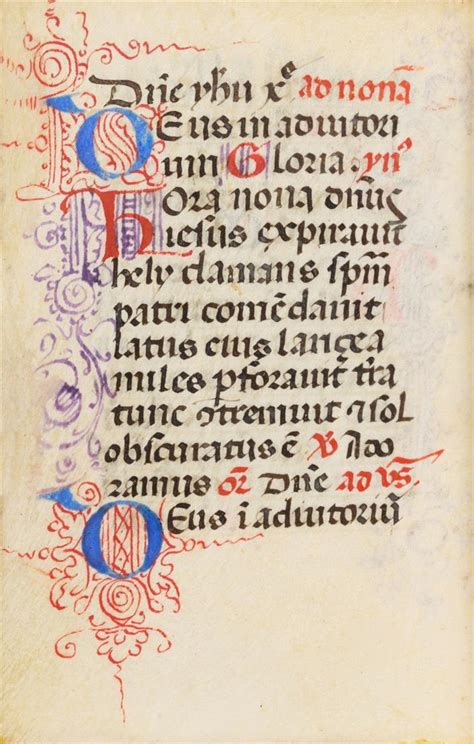 Dn̄e yhū xp̄e ad nonā
Deus in adiutori
um Gloria. ynˢ
Hora nona dn̄us
iesus expirauit
hely clamans sp̄m
patri comēdauit
latus eius lancea
miles ꝑforauit t̄ra
tunc ꝯtremuit ⁊ sol
obscuratus ē ℣ Ado
ramus or̄ Dn̄e ad vs̄.
Deus ī adiutoriū